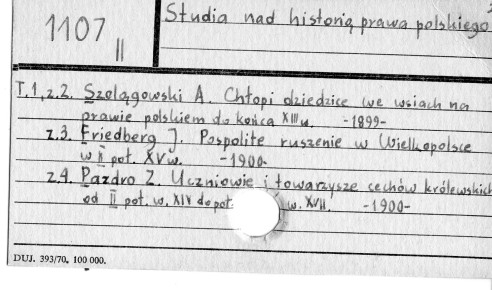 1107 II
Studia nad historią prawa polskiego
T.1, z.2. Szelągowski A. Chłopi dziedzice we wsiach na
prawie polskiem do końca XIII w. -1899-
z.3. Friedberg J. Pospolite ruszenie w Wielkopolsce
w II poł. XV w. -1900-
z.4. Pazdro Z. Uczniowie i towarzysze cechów królewskich
od II poł. w. XIV do poł. w. XVII. -1900-
DUJ. 393/70. 100 000.